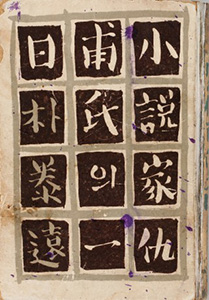 小說家仇
甫氏의一
日朴泰遠